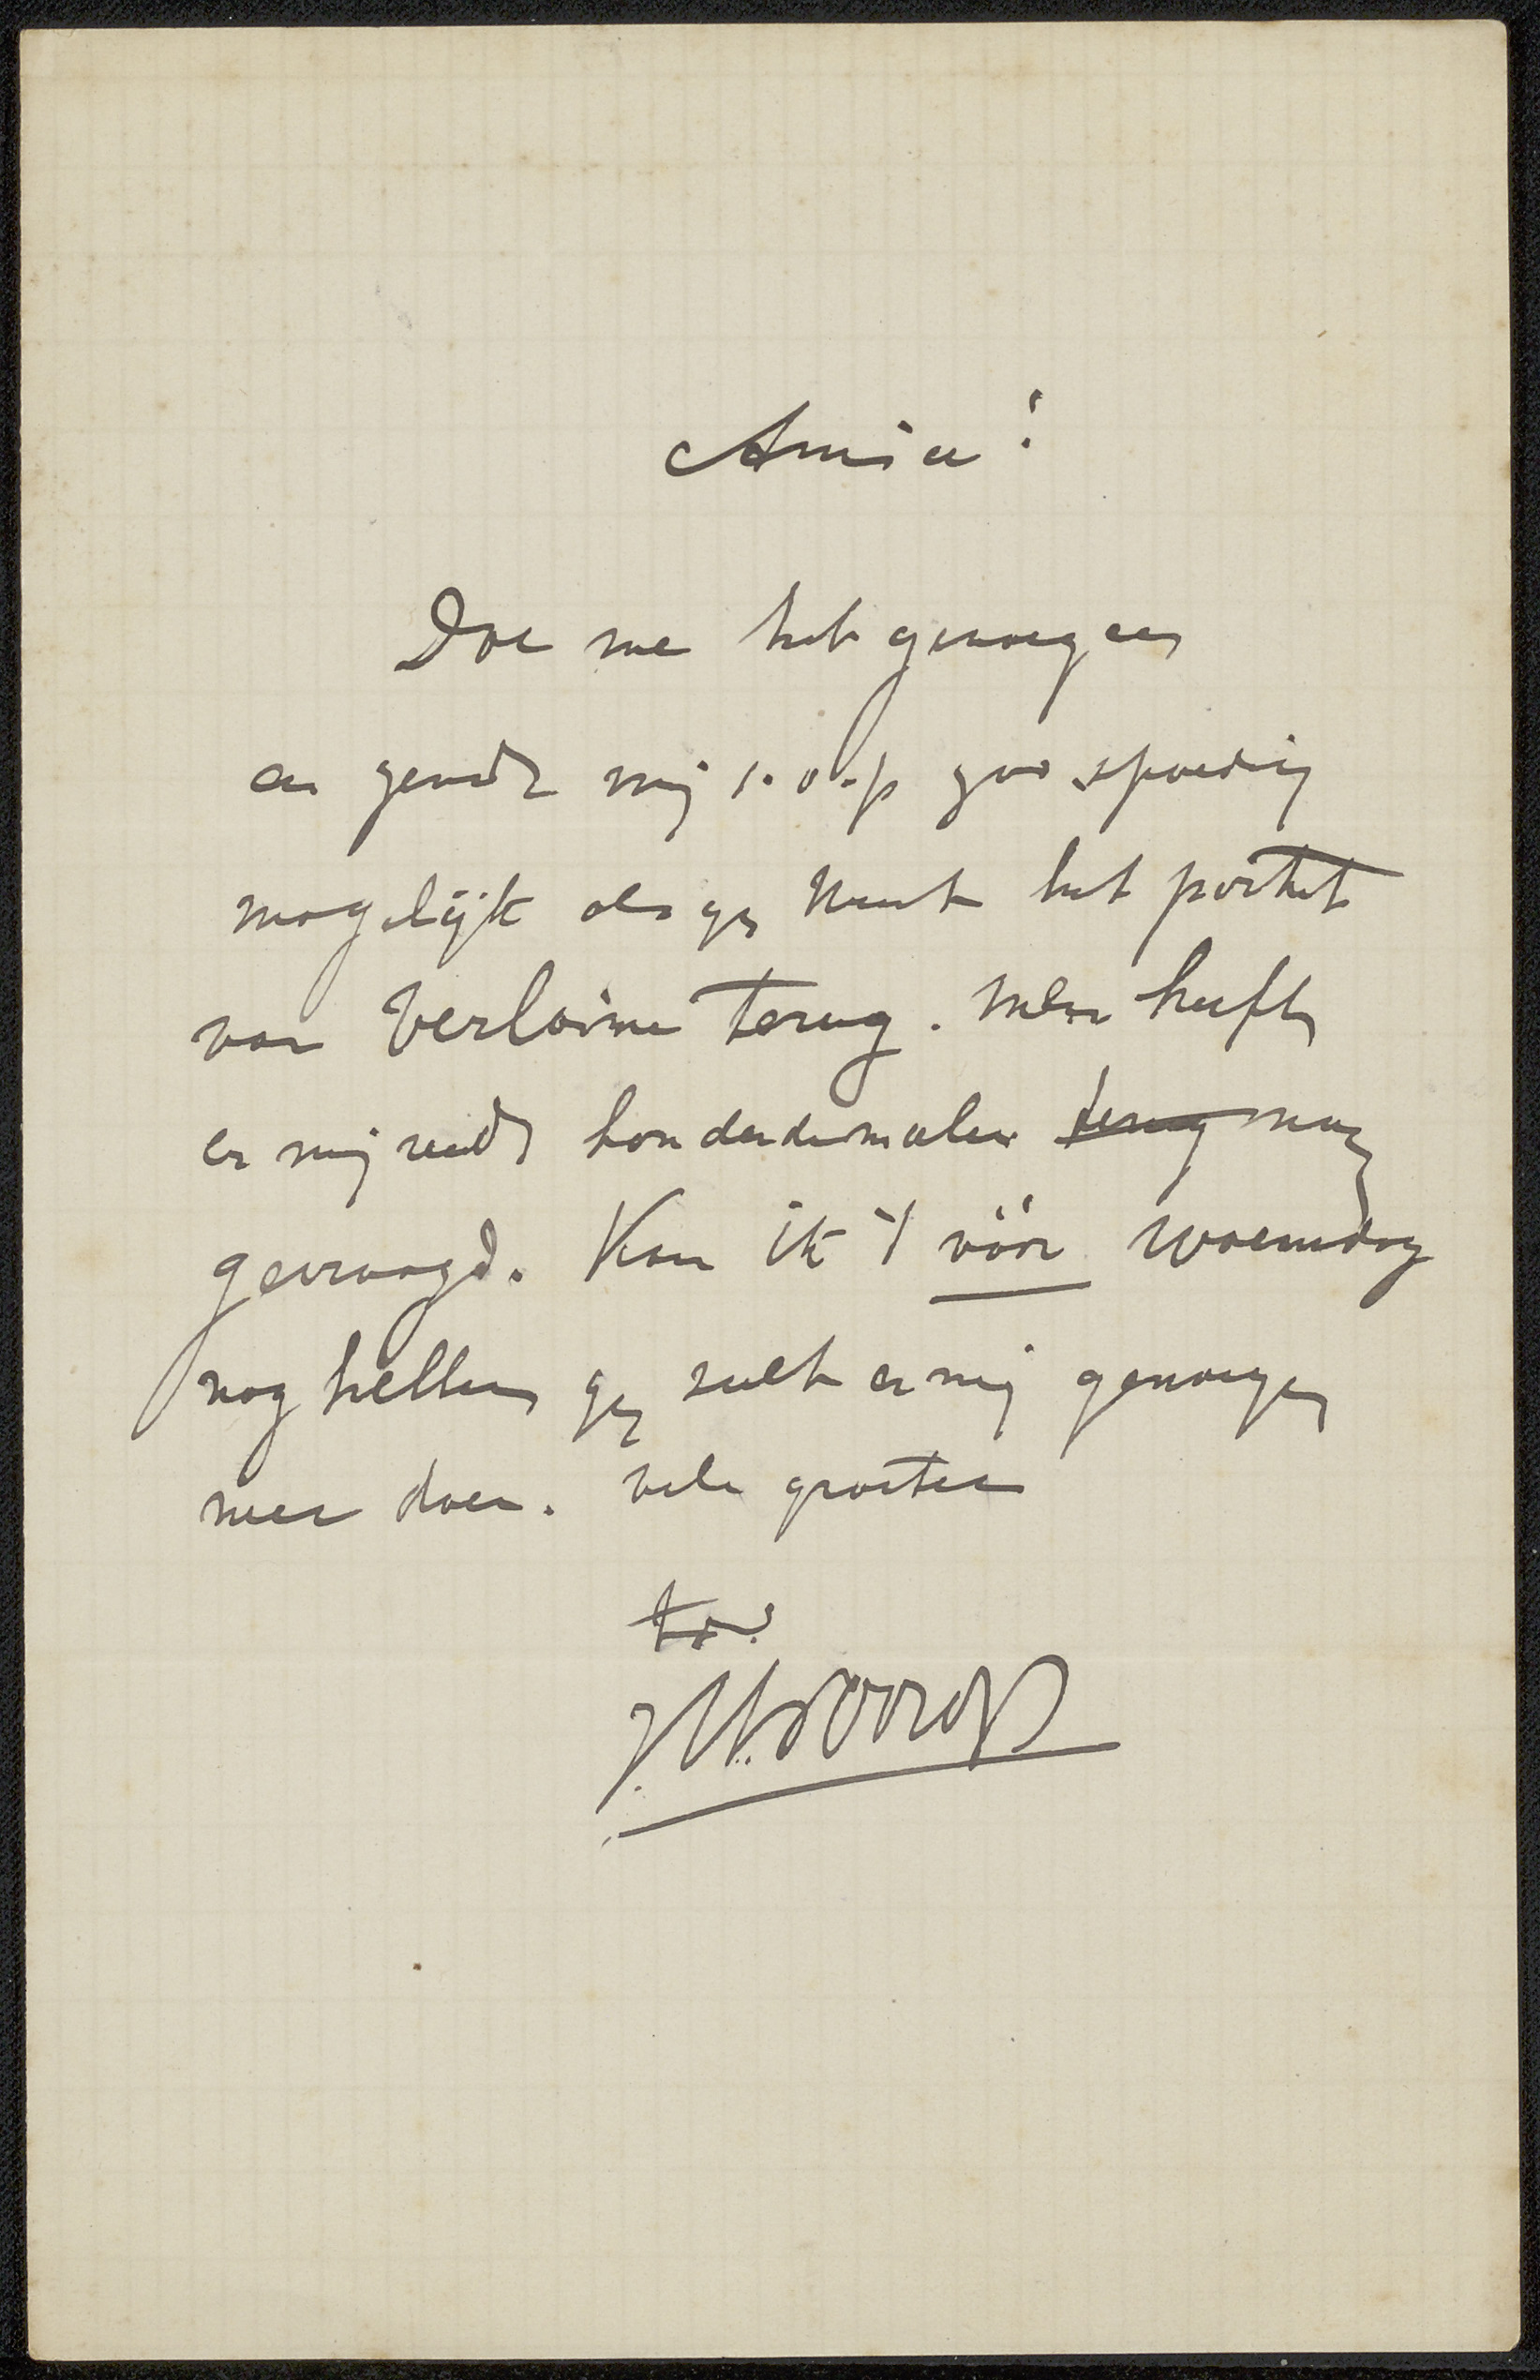 Amice!
Doe me het genoegen
en zendt mij s.v.p zoo spoedig
mogelijk als gij kunt het portret
van Verlaine terug. Men heeft
er mij reeds honderdemalen terug naar
gevraagd. Kan ik 't vóór Woensdag
nog hebben gij zult er mij genoegen
mee doen. vele groeten
tt.
J.Th.Toorop